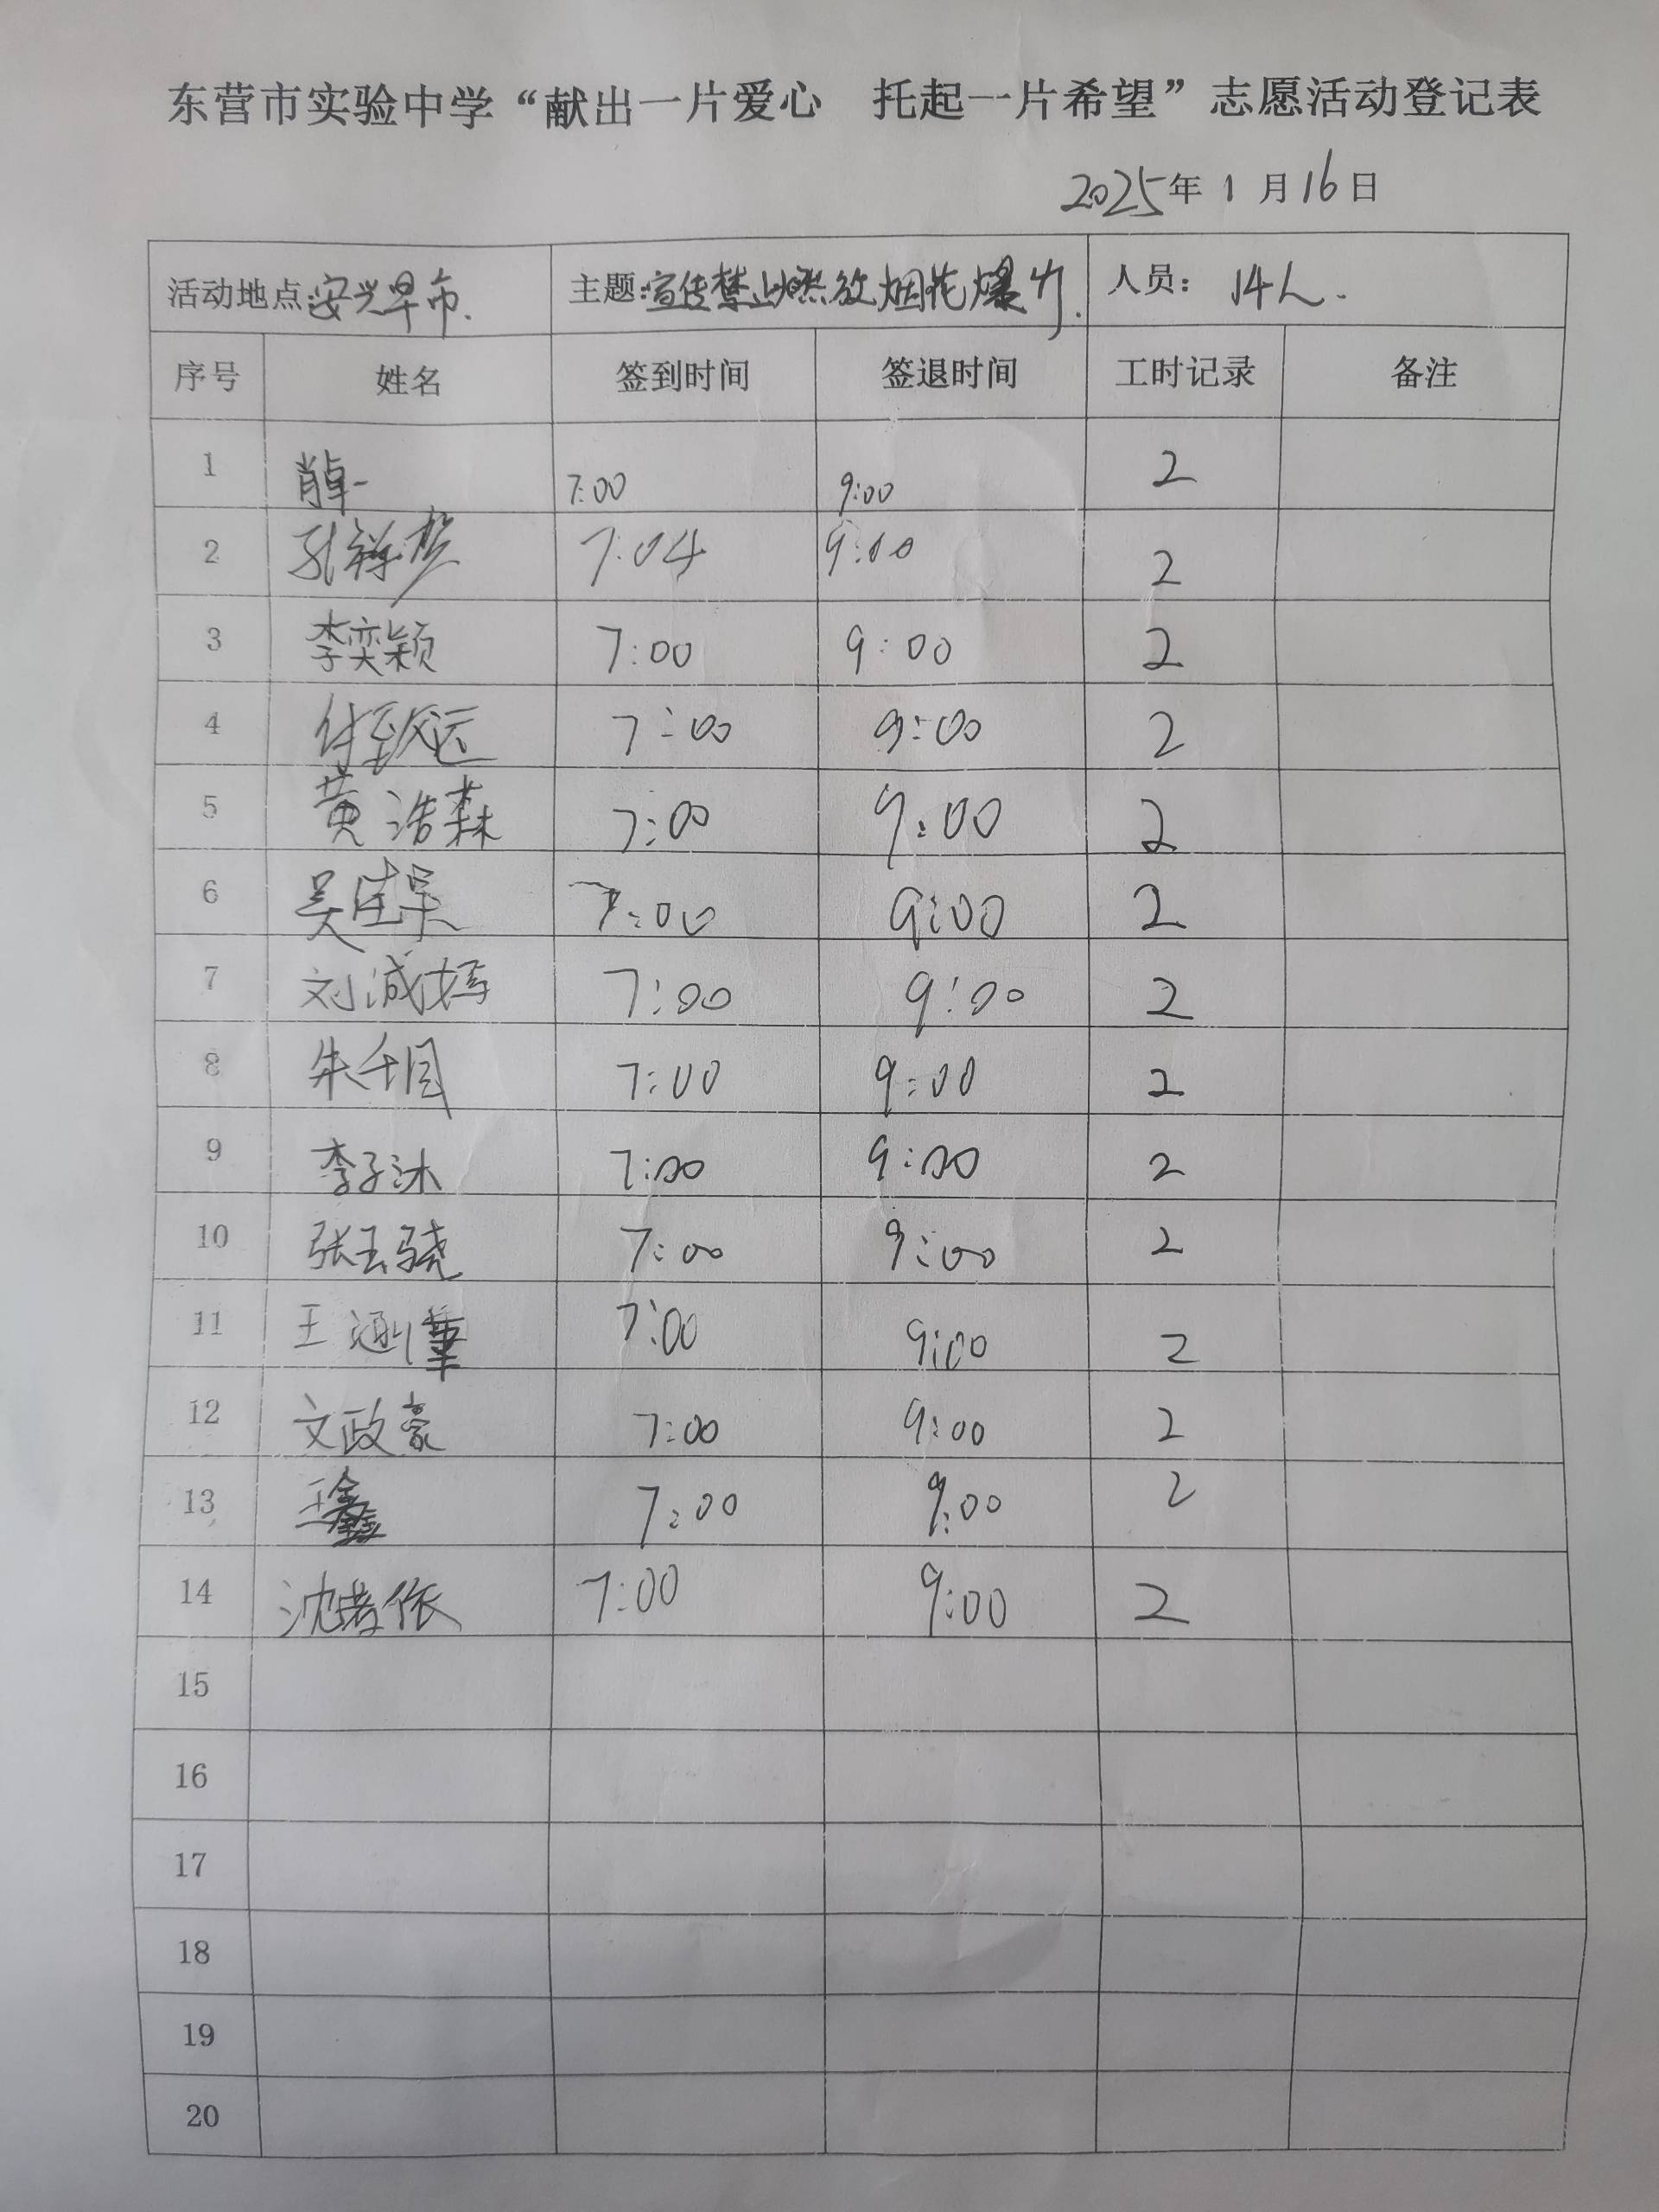 东营市实验中学“献出一片爱心 托起一片希望”志愿活动登记表
2025年 1 月 16 日
活动地点:安兴早市. 主题:宣传禁止燃放烟花爆竹. 人员: 14人.
序号 姓名 签到时间 签退时间 工时记录 备注
1 肖卓一 7:00 9:00 2
2 孔祥 7:04 9:00 2
3 李奕颖 7:00 9:00 2
4 付致远 7:00 9:00 2
5 黄浩森 7:00 9:00 2
6 吴佳昊 7:00 9:00 2
7 刘 7:00 9:00 2
8 朱千 7:00 9:00 2
9 李子沐 7:00 9:00 2
10 张玉骁 7:00 9:00 2
11 王涵 7:00 9:00 2
12 文政豪 7:00 9:00 2
13 王鑫 7:00 9:00 2
14 沈若依 7:00 9:00 2
15
16
17
18
19
20